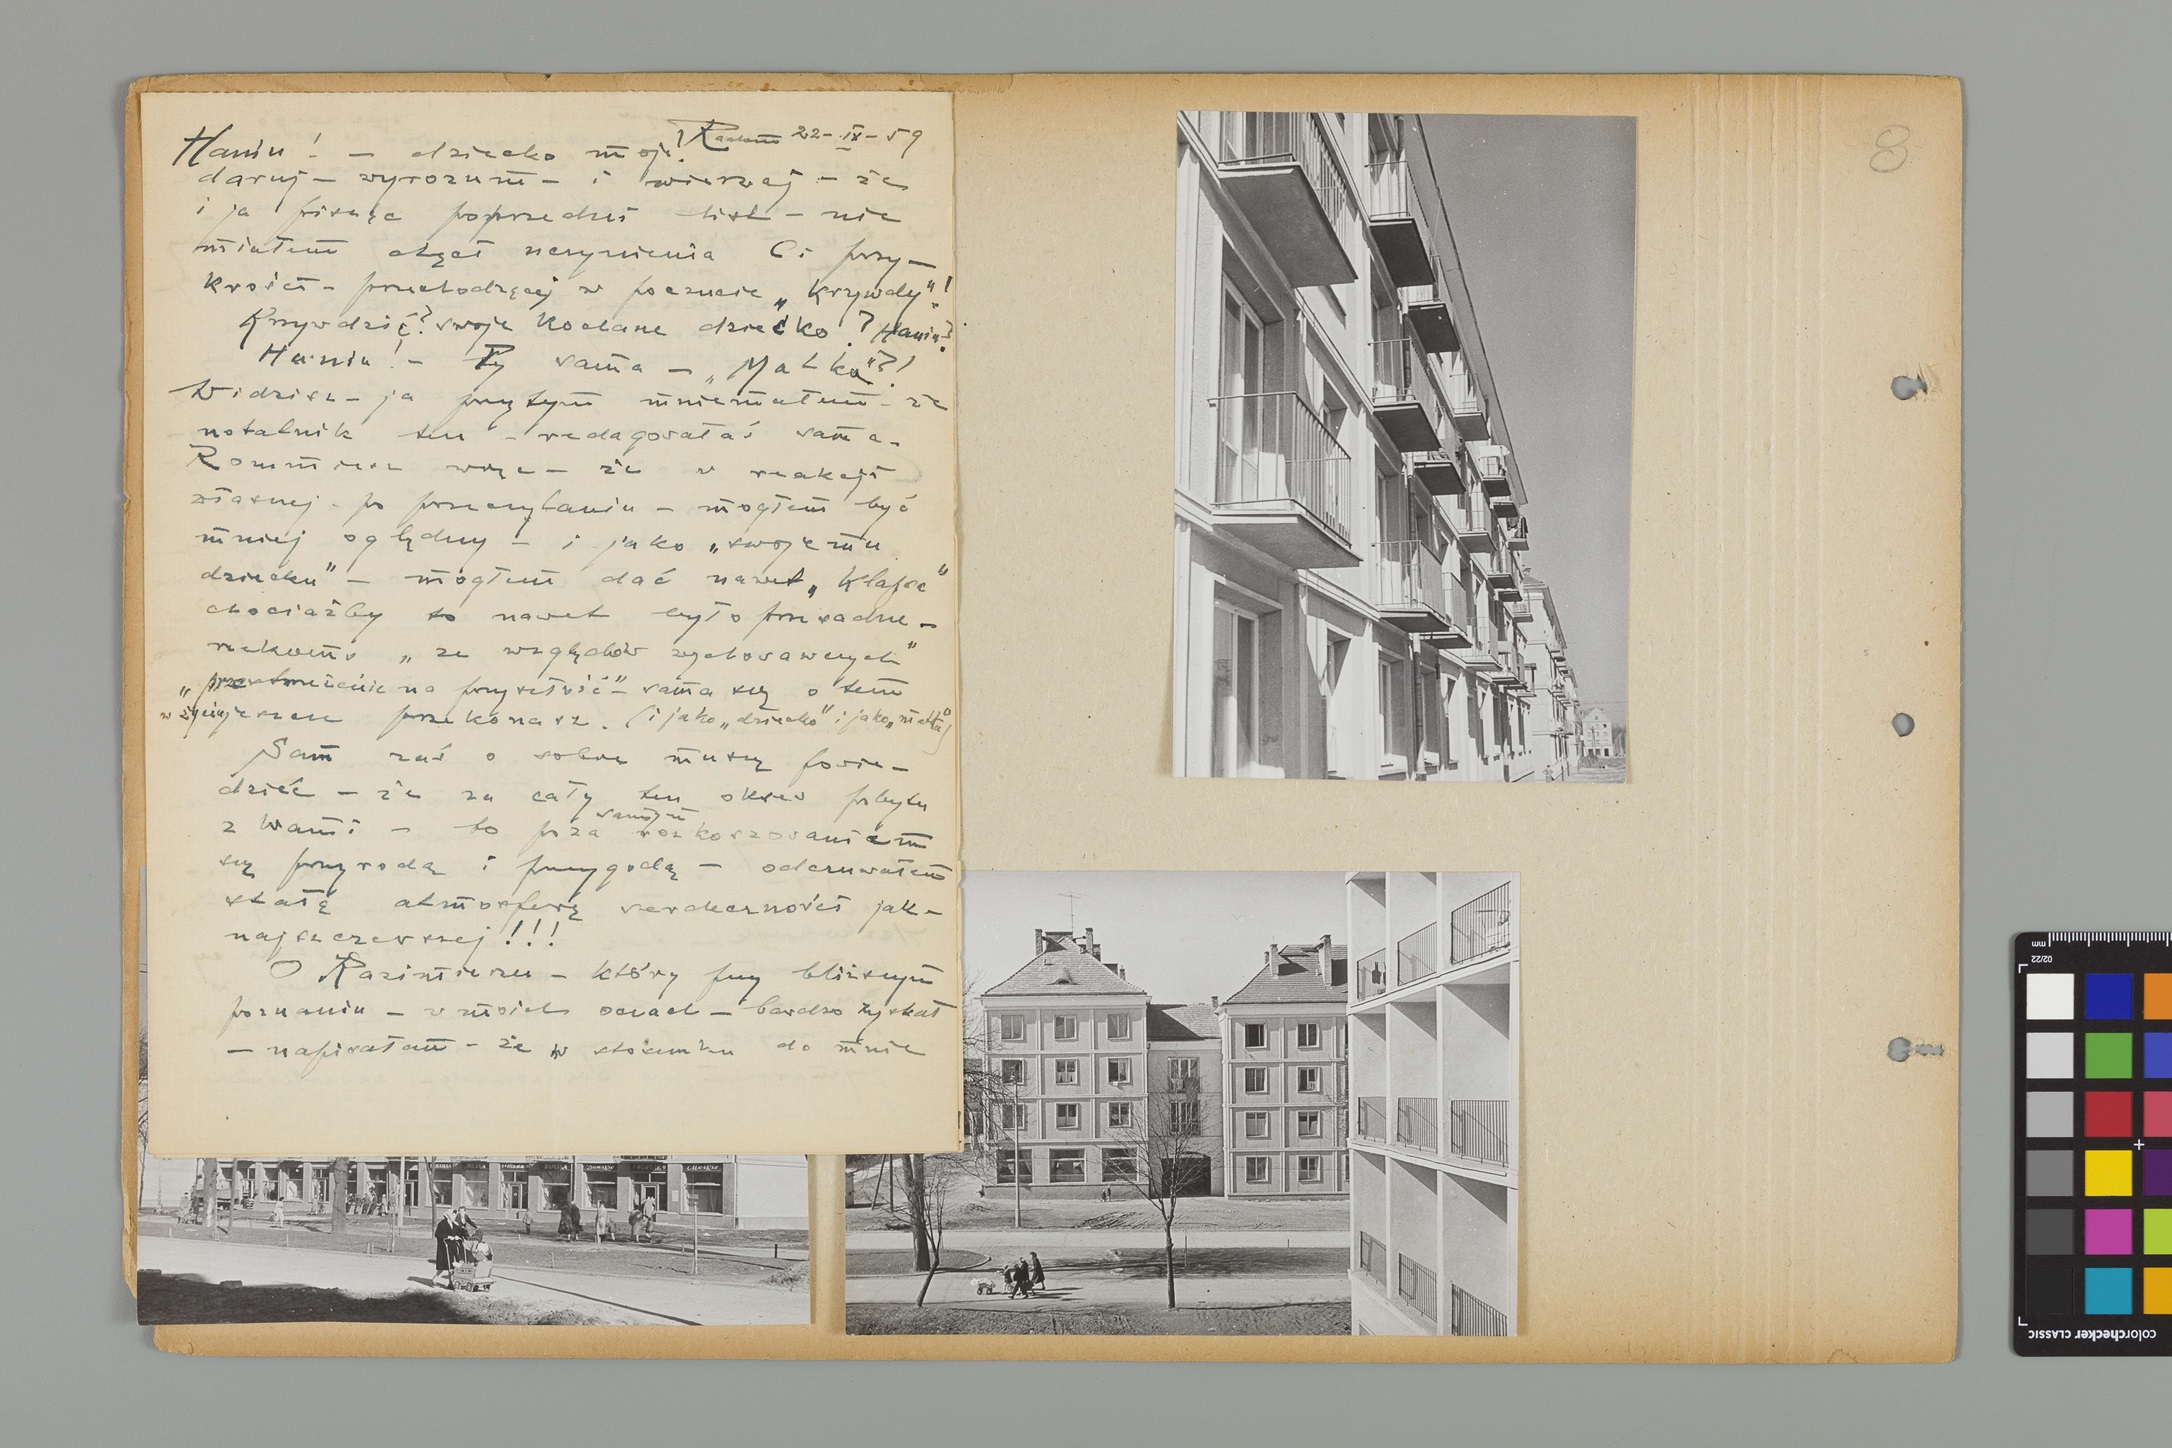 Radom 22-IX-59
Haniu! - dziecko moje!
daruj - wyrozum - i wierzaj - że
i ja pisząc poprzedni list - nie
miałem chęci uczynienia Ci przy-
krości - przechodzącej w poczucie „Krzywdy"!
Krzywdzić? swoje kochane dziecko? Haniu?
Haniu! - Ty sama - „Matka"?!
Widzisz - ja przytym mniemałem - że
notatnik ten - redagowałaś sama -
Rozumiesz więc - że w reakcji
własnej - po przeczytaniu - mogłem być
mniej oględny - i jako „swojemu
dziecku" - mogłem dać nawet „Klapsa"
chociażby to nawet było przesadne -
rzekomo „ze względów wychowawczych"
na przyszłość" - sama się o tem
w życiu jeszcze przekonasz. (i jako „dziecko" i jako „matka")
Sam zaś o sobie muszę powie-
dzieć - że za cały ten okres pobytu
z Wami - to poza samym rozkoszowaniem
się przyrodą i przygodą - odczuwałem
stałą atmosferę serdeczności jak-
najszczerszej!!!
O Kazimierzu - który przy bliższym
poznaniu - w moich oczach - bardzo zyskał
- napisałam - że w stosunku do mnie
8
mm
02/22
colorchecker CLASSIC